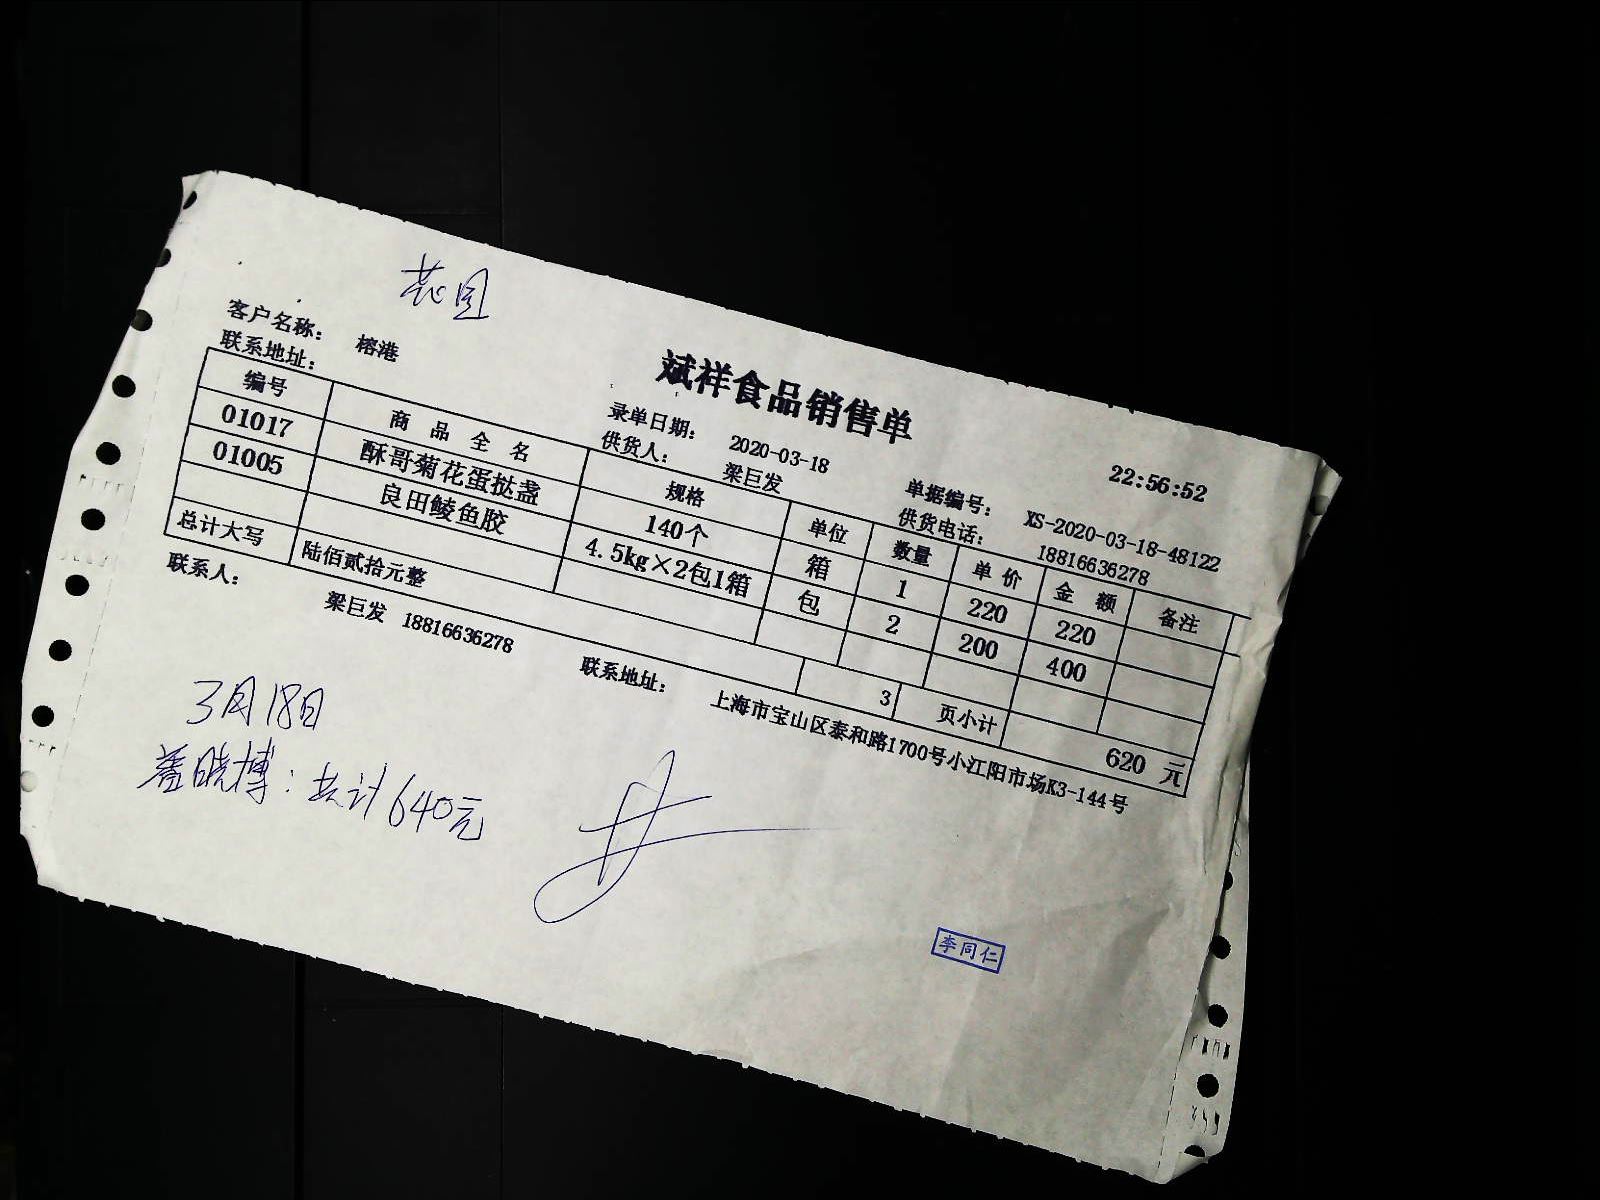 花园
斌祥食品销售单
22:56:52
客户名称: 榕港
录单日期: 2020-03-18
单据编号: XS-2020-03-18-48122
联系地址:
供货人: 梁巨发
供货电话: 18816636278
编号 商品全名 规格 单位 数量 单价 金额 备注
01017 酥哥菊花蛋挞盏 140个 箱 1 220 220
01005 良田鲮鱼胶 4.5kg×2包1箱 包 2 200 400
总计大写 陆佰贰拾元整 3 页小计 620 元
联系人: 梁巨发 18816636278 联系地址: 上海市宝山区泰和路1700号小江阳市场K3-144号
3月18日
晓博: 共计640元
李同仁